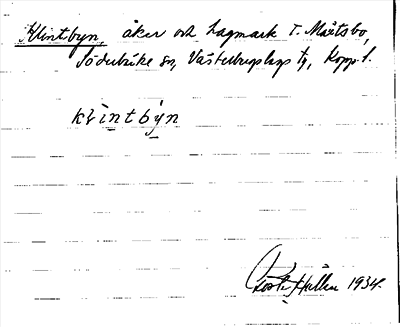 Klintbyn, åker och hagmark t. Mårtsbo,
Söderbärke sn, Västerbergslags tg, Kopp. l.
klintbyn
Gösta Hallén 1934.